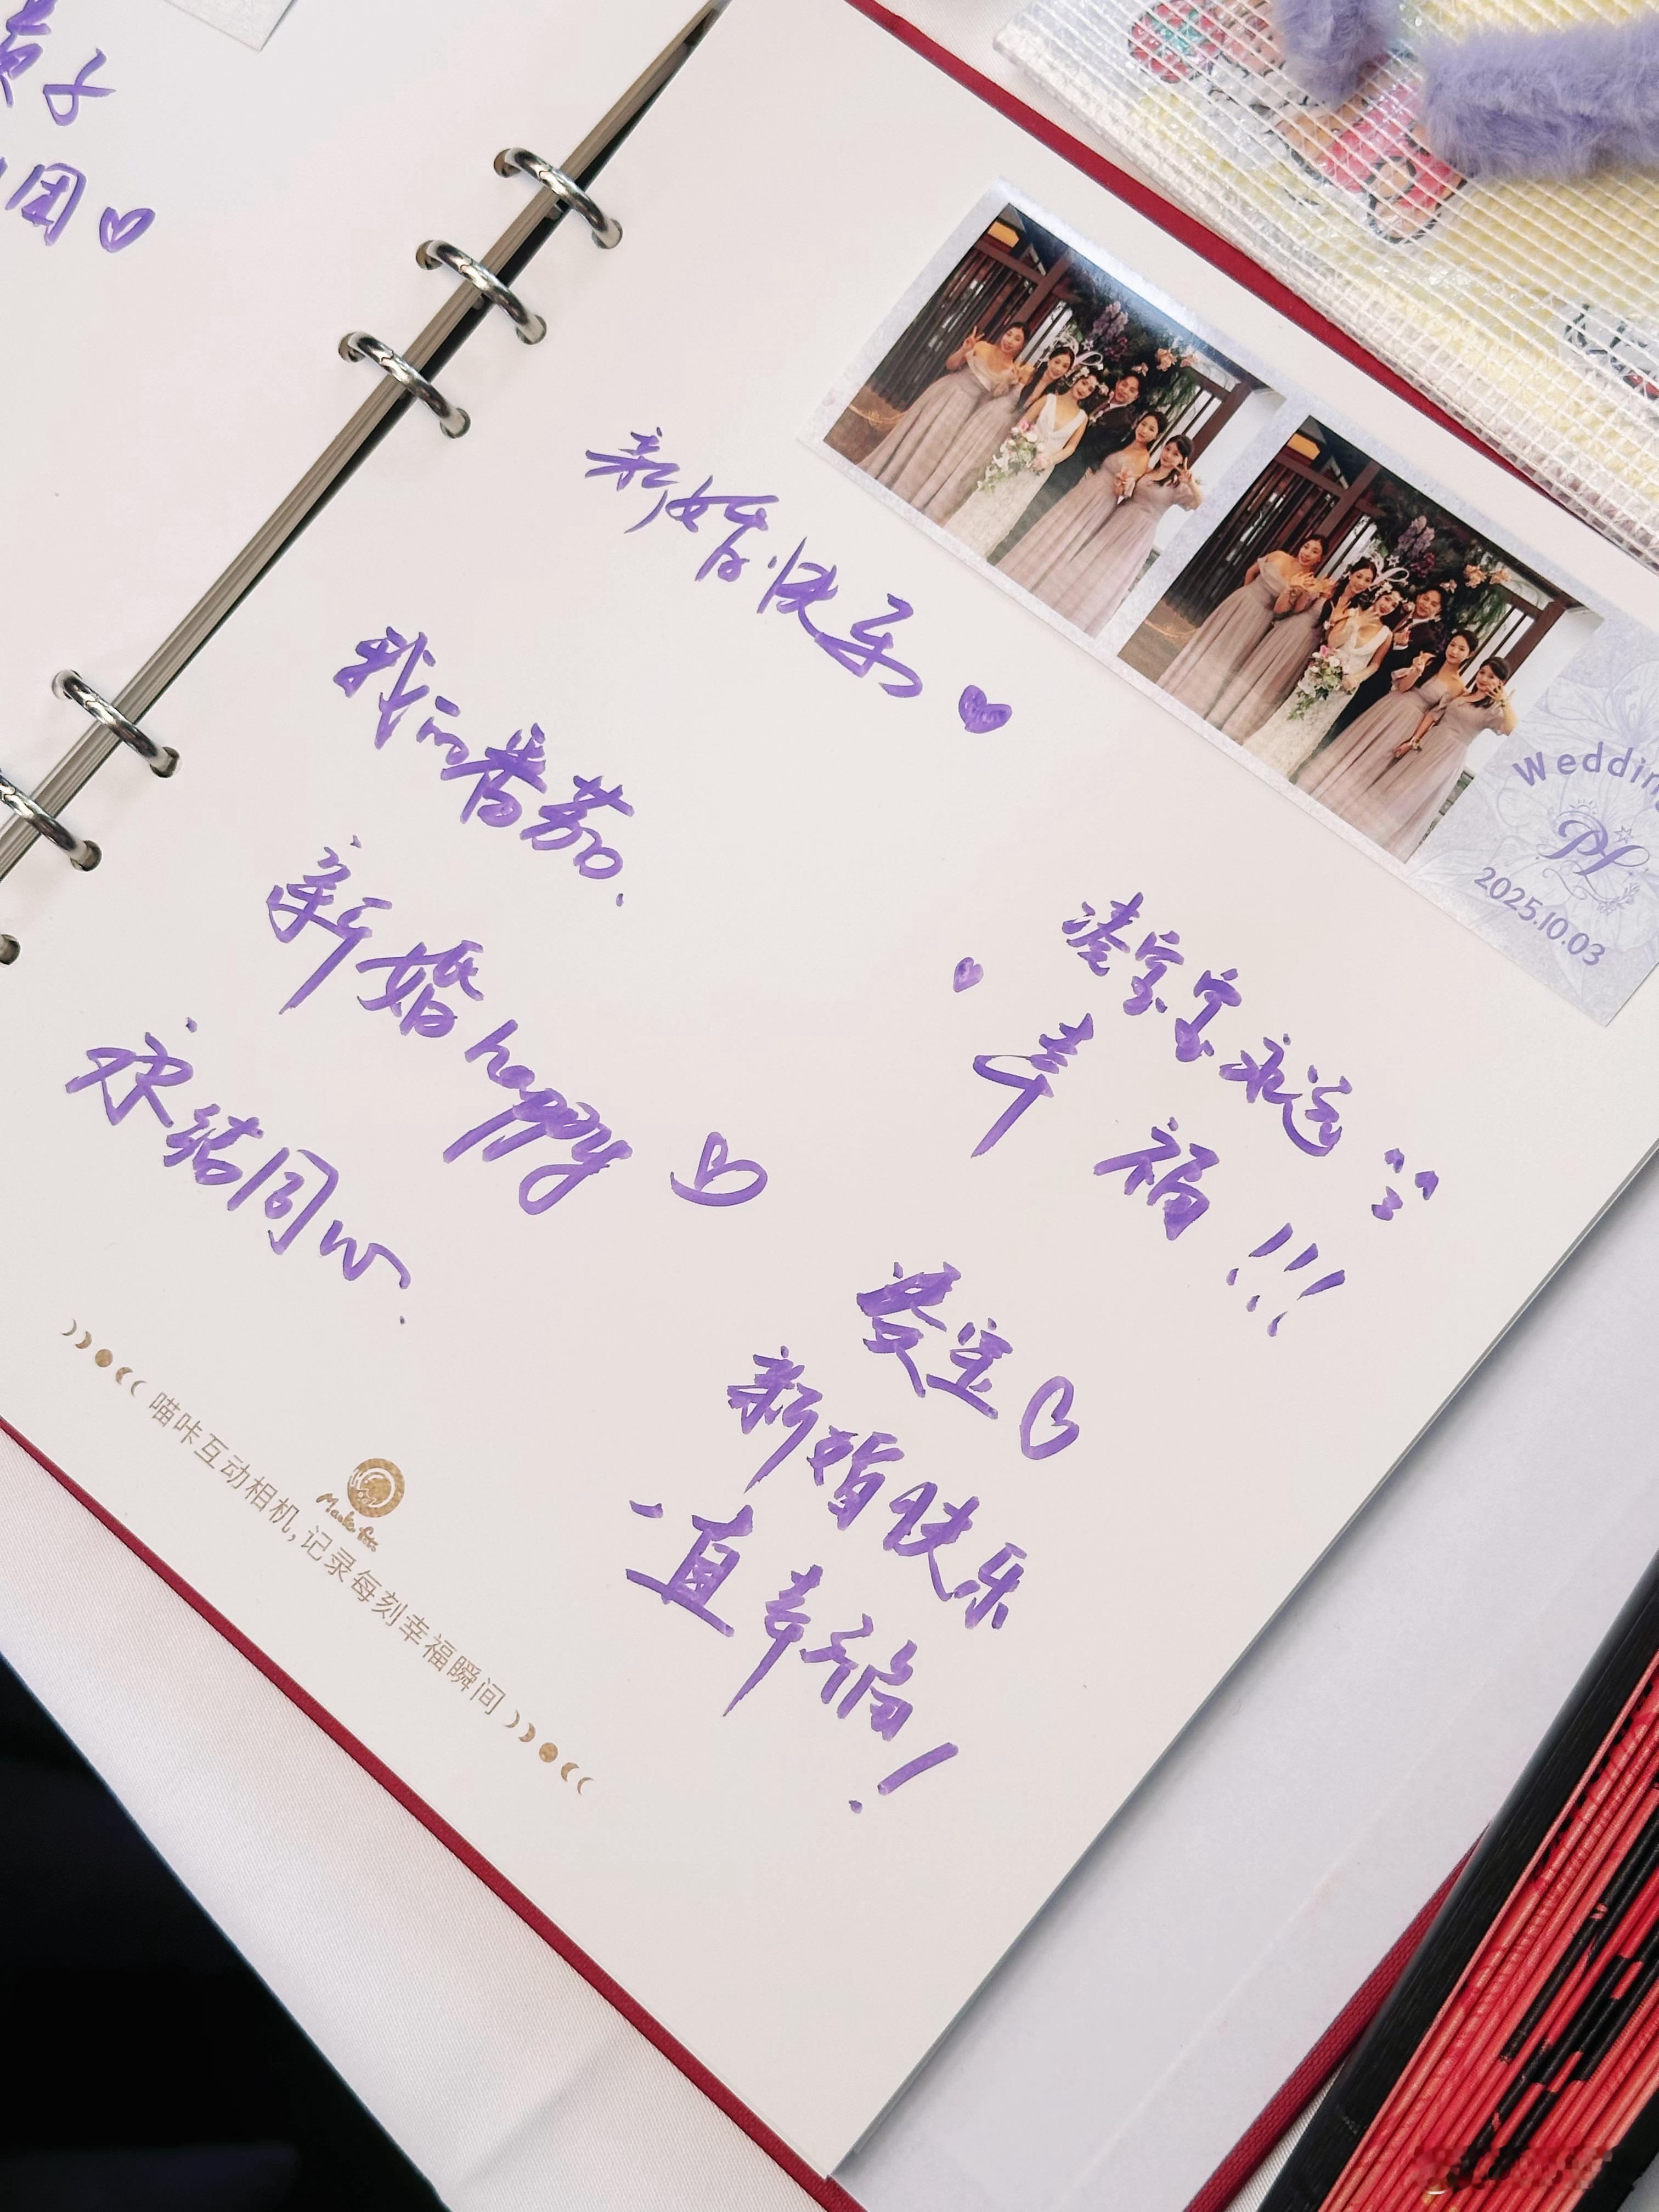 子
团
新婚快乐
我的番茄.
新婚happy
永结同心.
宝宝永远
幸福!!!
婆宝
新婚快乐
一直幸福!
Wedding
PL
2025.10.03
喵咔互动相机,记录每刻幸福瞬间